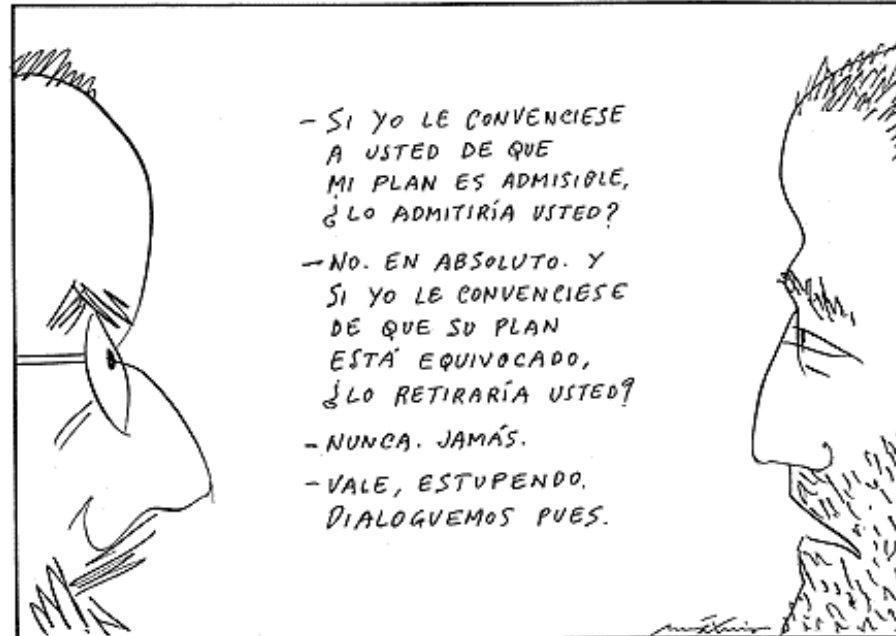 - SI YO LE CONVENCIESE
A USTED DE QUE
MI PLAN ES ADMISIBLE,
¿LO ADMITIRÍA USTED?
- NO. EN ABSOLUTO. Y
SI YO LE CONVENCIESE
DE QUE SU PLAN
ESTÁ EQUIVOCADO,
¿LO RETIRARÍA USTED?
- NUNCA. JAMÁS.
- VALE, ESTUPENDO.
DIALOGUEMOS PUES.